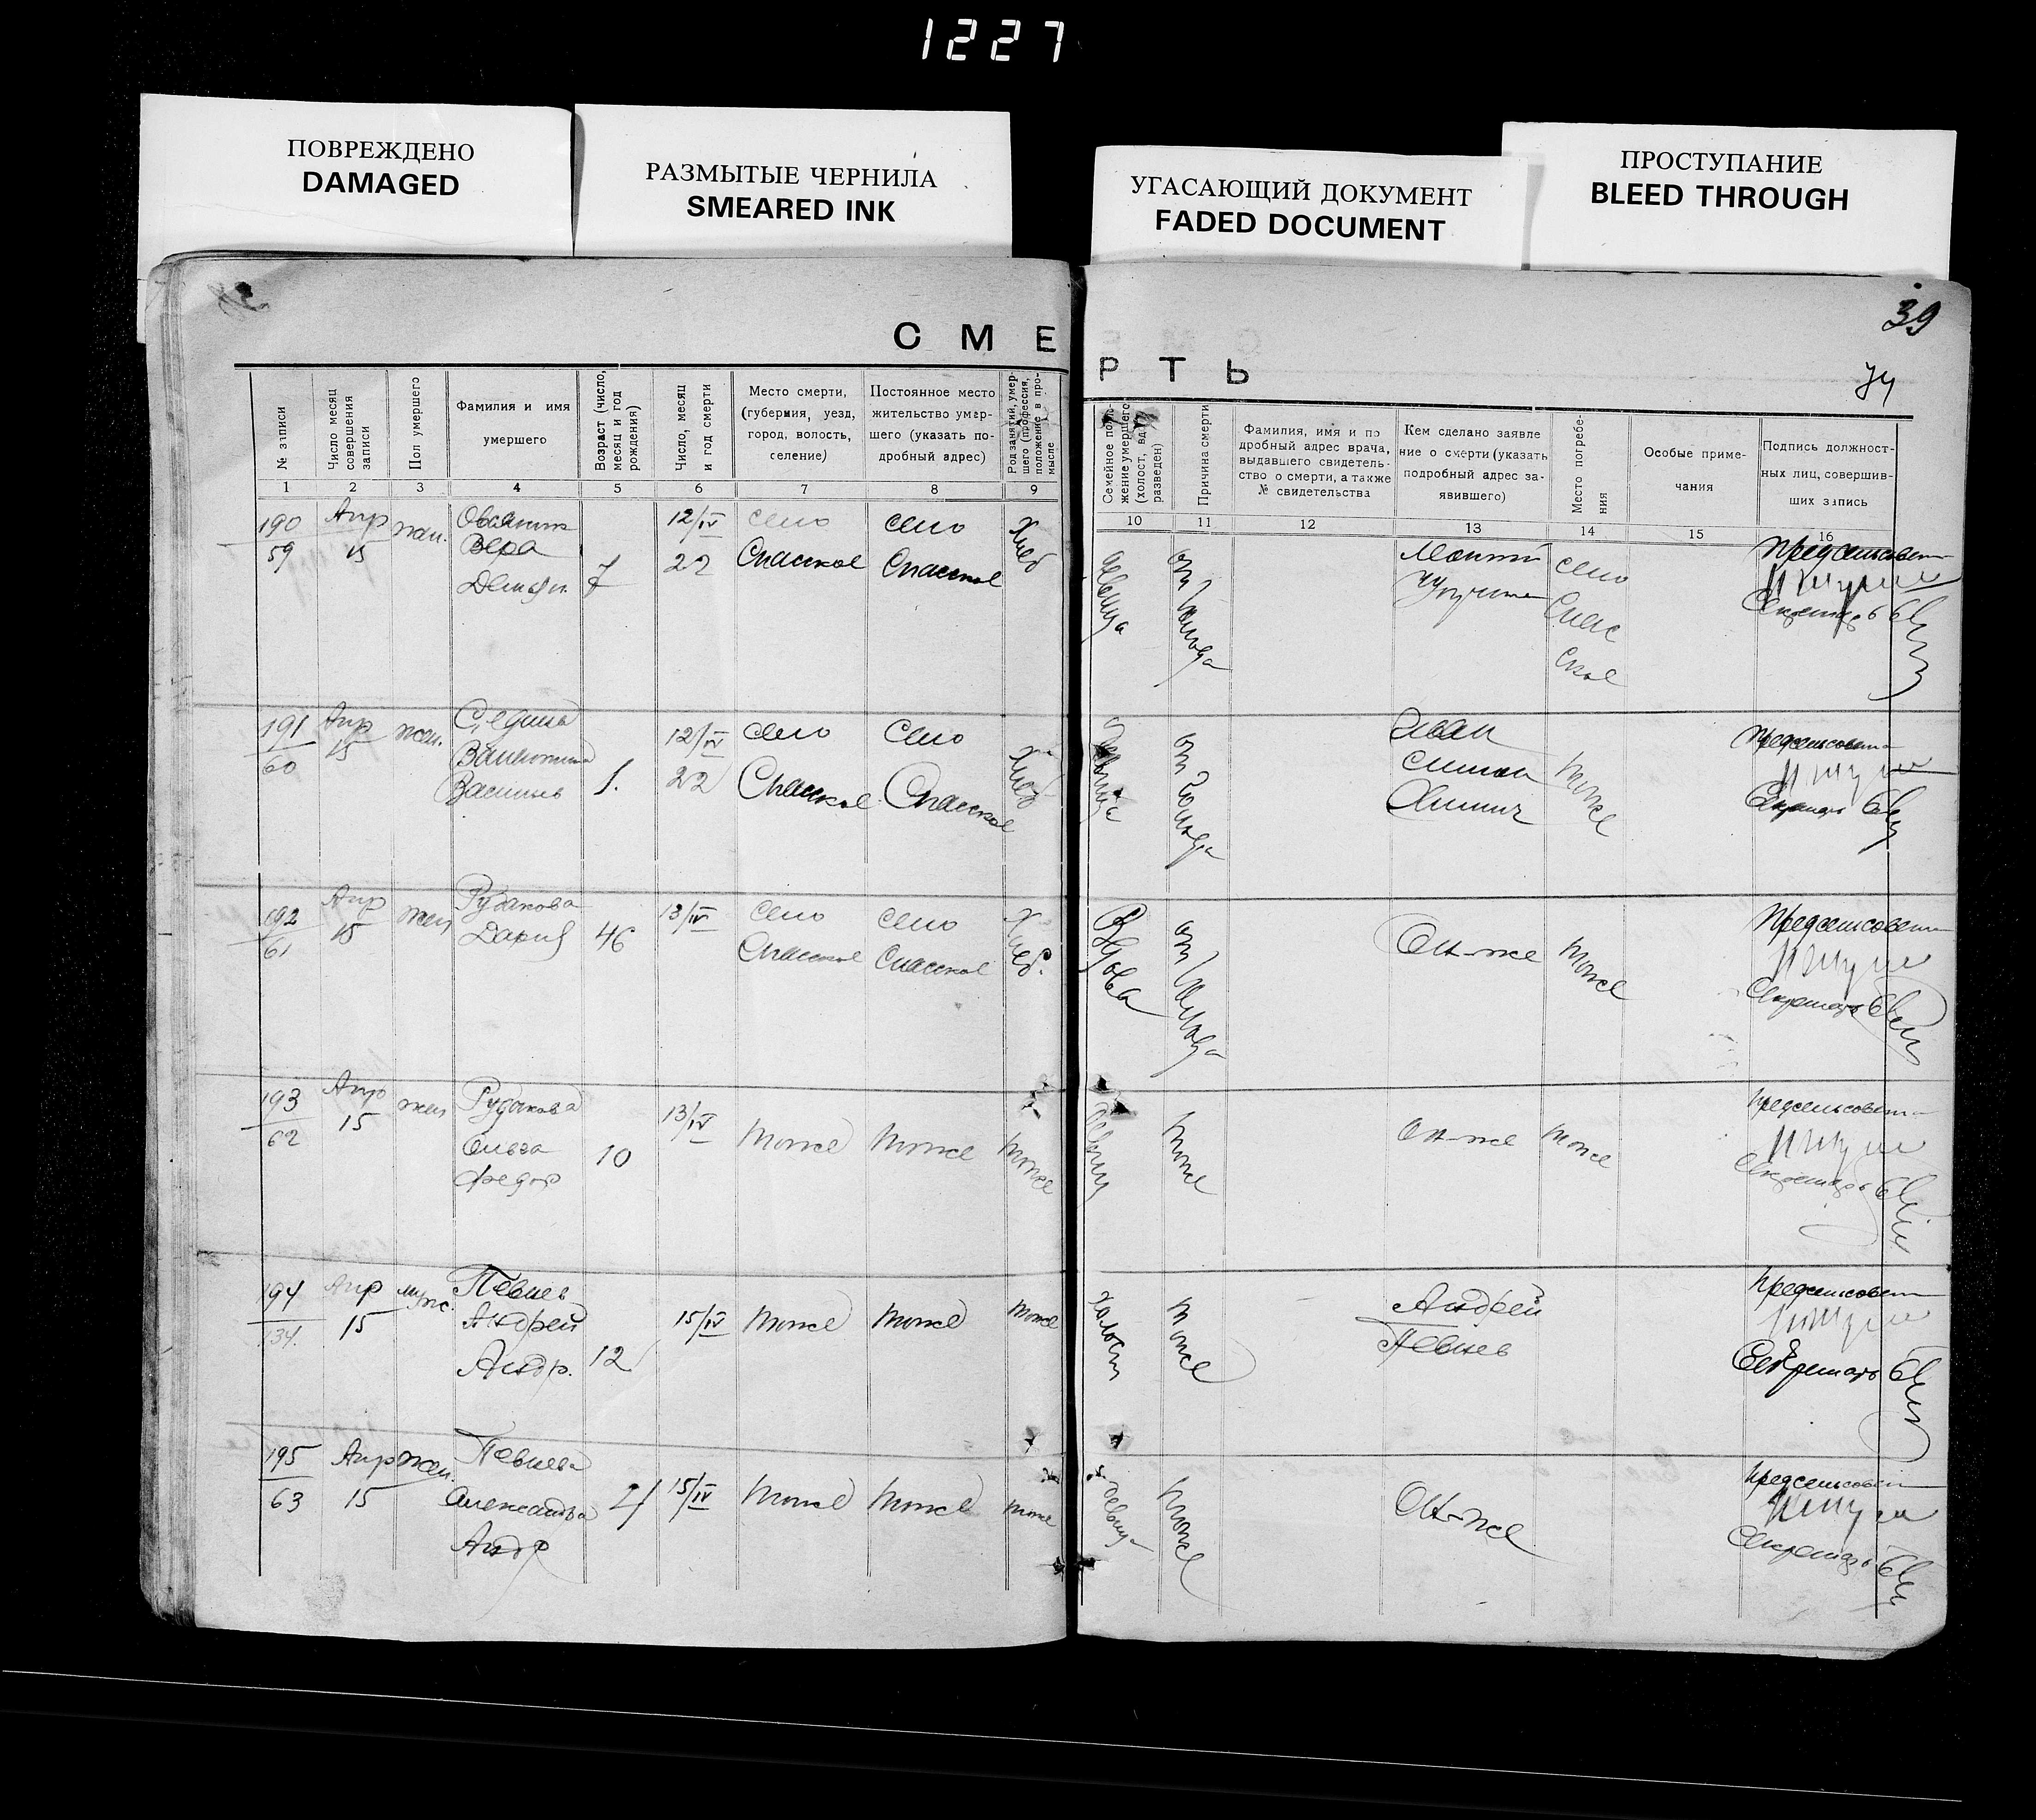 1227
ПОВРЕЖДЕНО
DAMAGED
РАЗМЫТЫЕ ЧЕРНИЛА
SMEARED INK
УГАСАЮЩИЙ ДОКУМЕНТ
FADED DOCUMENT
ПРОСТУПАНИЕ
BLEED THROUGH
39
74
СМЕРТЬ
№ записи
Число месяц
совершения
записи
Пол умершего
Фамилия и имя
умершего
Возраст (число,
месяц и год
рождения)
Число, месяц
и год смерти
Место смерти,
(губерния, уезд,
город, волость,
селение)
Постоянное место
жительство умер-
шего (указать по-
дробный адрес)
Род занятий, умер-
шего (профессия,
положение в про-
мысле
Семейное поло-
жение умершего
(холост, вдов,
разведен)
Причина смерти
Фамилия, имя и по
дробный адрес врача,
выдавшего свидетель-
ство о смерти, а также
№ свидетельства
Кем сделано заявле
ние о смерти (указать
подробный адрес за-
явившего)
Место погребе-
ния
Особые приме-
чания
Подпись должност-
ных лиц, совершив-
ших запись
1 2 3 4 5 6 7 8 9 10 11 12 13 14 15 16
190 Апр жен. 12/IV село село
59 15 Вера 7 22 Спасское Спасское Хлеб
девица от голода село
Спас
ское
Предсельсовета
Секретарь
191 Апр жен. 12/IV село село
60 15 Валентина 1. 22 Спасское Спасское Хлеб
девица от голода тоже
Предсельсовета
Секретарь
192 Апр жен Рудакова 13/IV село село
61 15 Дария 46 Спасское Спасское Хлеб.
Вдова от голода Он-же тоже
Предсельсовета
Секретарь
193 Апр жен Рудакова 13/IV тоже тоже тоже
62 15 Ольга 10
Федор
девица тоже Он-же тоже
Предсельсовета
Секретарь
194 Апр муж. Певцев 15/IV тоже тоже тоже
134. 15 Андрей 12
Андр.
холост тоже Андрей
Певцев
Предсельсовета
Секретарь
195 Апр жен. Певцева 15/IV тоже тоже тоже
63 15 Александра
Андр
девица тоже Он-же
Предсельсовета
Секретарь